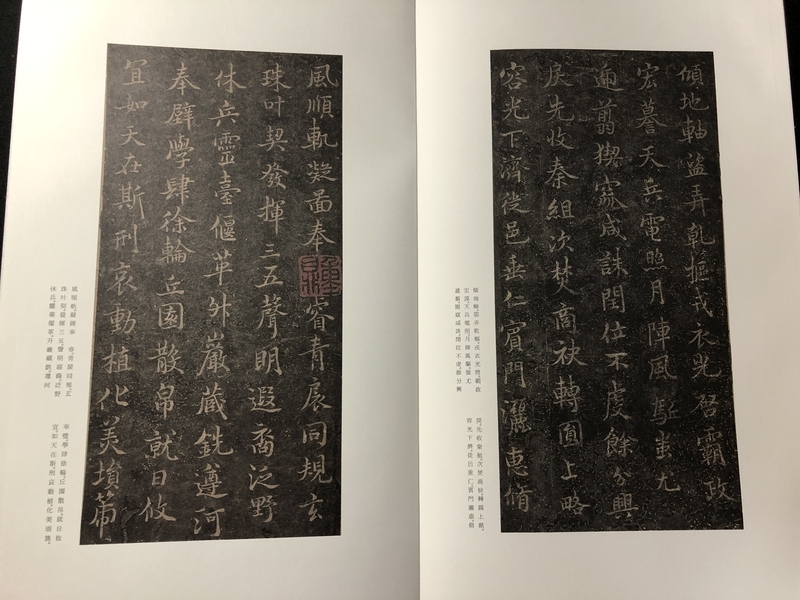 傾地軸盜弄乾樞戎衣光啓霸政
宏謩天兵電照月陣風驅蚩尤
遄翦猰窳咸誅閏位不虔餘分興
戾先收秦組次焚商袂轉圓上略
容光下濟徙邑垂仁賓門灑惠脩
傾地軸盜弄乾樞戎衣光啓霸政
宏謩天兵電照月陣風驅蚩尤
遄翦猰窳咸誅閏位不虔餘分興
戾先收秦組次焚商袂轉圓上略
容光下濟徙邑垂仁賓門灑惠脩
風順軌凝圖奉睿青扆同規玄
珠叶契發揮三五聲明遐裔泛野
休兵靈臺偃革舛巖藏銑遵河
奉璧學肆徐輪丘園散帛就日攸
宜如天在斯刑哀動植化美墳
風順軌凝圖奉睿青扆同規玄
珠叶契發揮三五聲明遐裔泛野
休兵靈臺偃革巖藏銑遵河
奉璧學肆徐輪丘園散帛就日攸
宜如天在斯刑哀動植化美墳